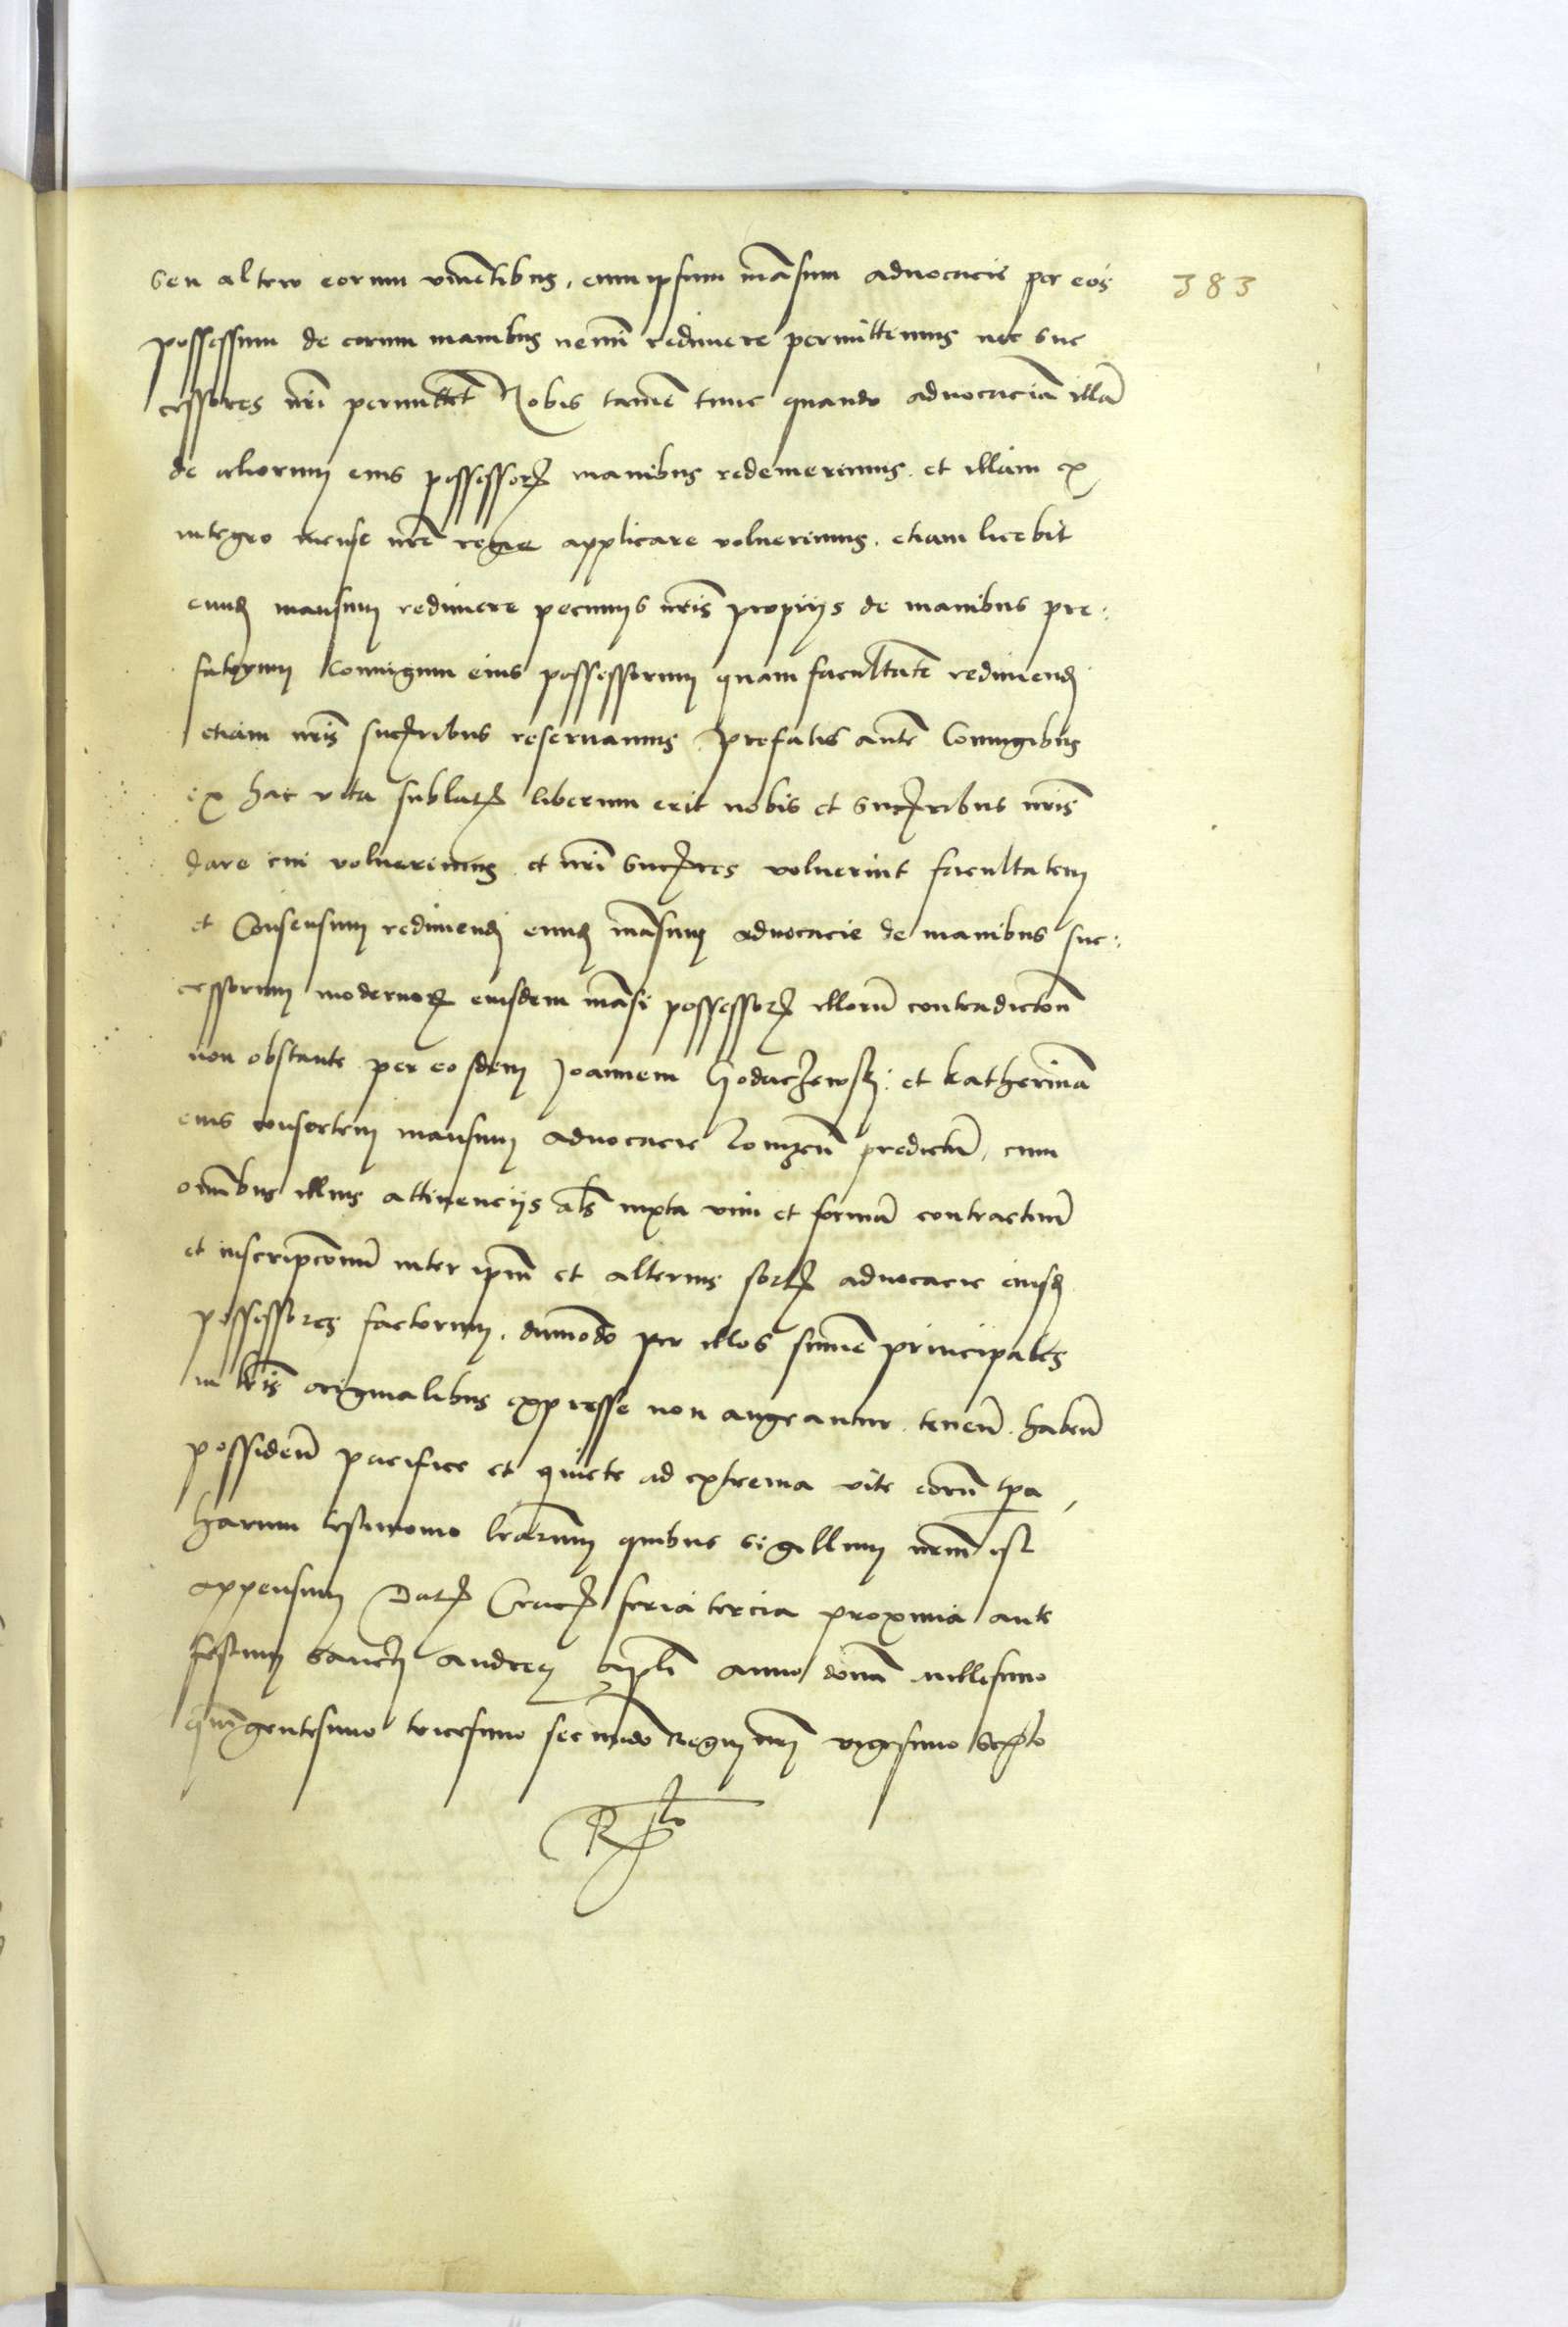 seu altero eorum viuētibus, eum ipsum māsum aduocacie per eos
383
possessum de eorum manibus nemī redimere permittemus nec suc
cessores nr̄i permittēt Nobis tamē tunc quando aduocaciā illā
de aliorum eius possessorꝝ manibus redemerimus et illam ex
integro mense nr̄e regie applicare voluerimus. etiam licebit
eundꝫ mansum redimere pecunijs nr̄is proprijs de manibus pre:
fatorum Coniugum eius possessorum quam facultatē redimendi
etiam nr̄is succꝛibus reseruamus. Prefatis autē Coniugibus
ex hac vita sublatꝭ liberum erit nobis et succꝛibus nr̄is
dare cui voluerimus et nr̄i succꝛes voluerint facultatem
et Consensum redimendi eundꝫ māsum aduocacie de manibus suc:
cessorum modernoꝝ eiusdem māsi possessorꝝ illorū contradictōn
non obstante per eosdem Joannem Godaczewskj: et Katherinā
eius consortem mansum aduocacie Lomzeñ predictū, cum
omībus illius attinencijs als̄ iuxta vim et formā contractuū
et inscripcōnū inter ipm̄ et alterius sortꝭ aduocacie eiusdꝫ
possessores factorum, dūmodo per illos summe principales
in lr̄is originalibus expresse non augeantur. teneñ. habeñ
possideñ pacifice et quiete ad extrema vite eorū tpa,
harum testimonio lr̄arum quibus sigillum nrm̄ est
appensum Datꝭ Cracꝭ feria tercia proxima ante
festum sanctj Andreę apl̄i anno domī millesimo
quīgentesimo tricesimo secundo Regni nr̄j vigesimo sexto